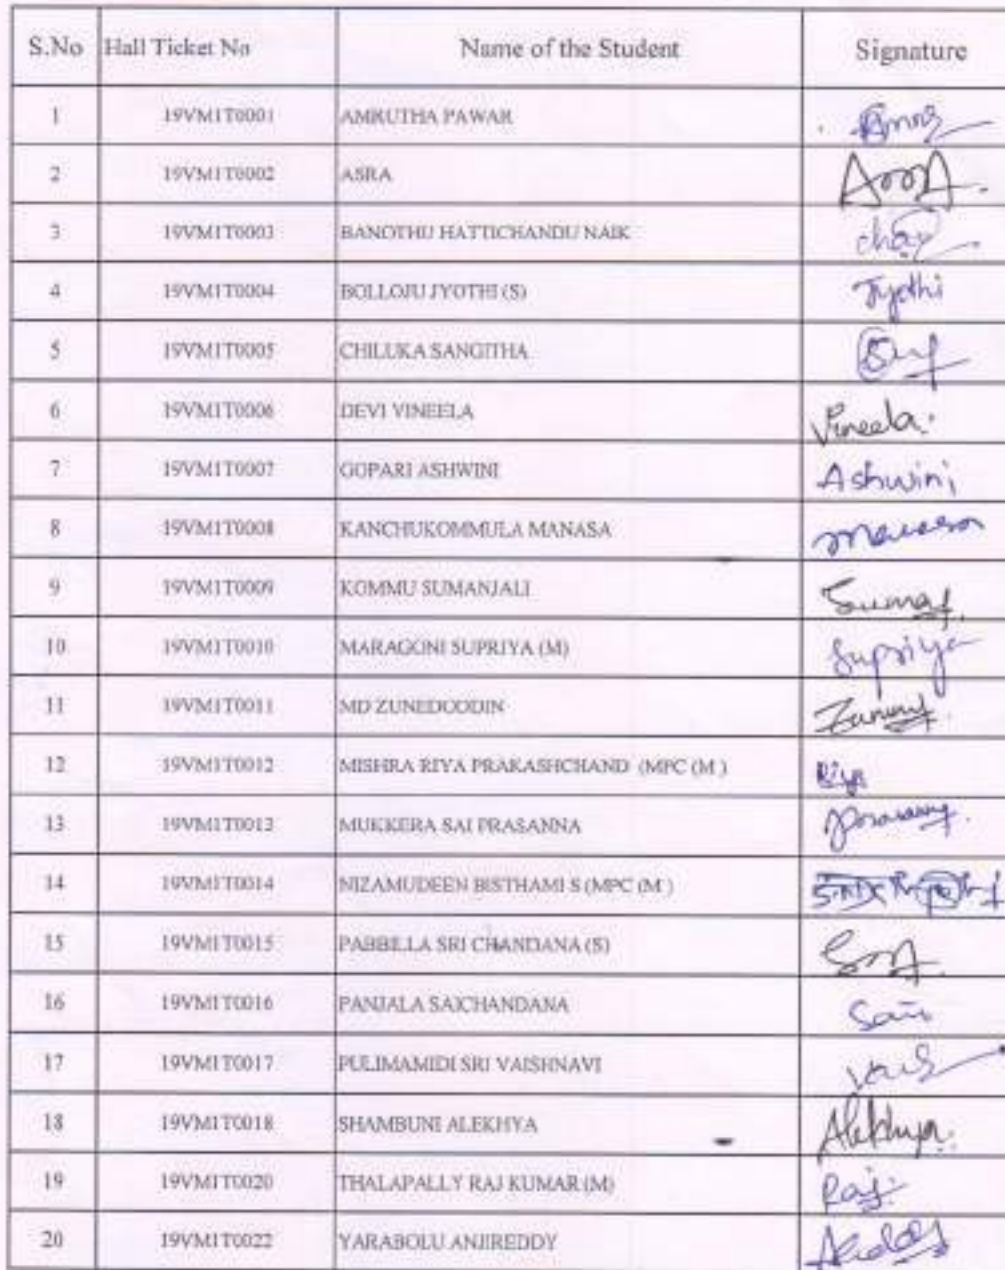 S.No Hall Ticket No Name of the Student Signature
1 19VM1T0001 AMRUTHA PAWAR
2 19VM1T0002 ASRA
3 19VM1T0003 BANOTHU HATTICHANDU NAIK
4 19VM1T0004 BOLLOJU JYOTHI (S) Jyothi
5 19VM1T0005 CHILUKA SANGITHA
6 19VM1T0006 DEVI VINEELA Vineela
7 19VM1T0007 GOPARI ASHWINI Ashwini
8 19VM1T0008 KANCHUKOMMULA MANASA manasa
9 19VM1T0009 KOMMU SUMANJALI
10 19VM1T0010 MARAGONI SUPRIYA (M) Supriya
11 19VM1T0011 MD ZUNEDOODIN
12 19VM1T0012 MISHRA RIYA PRAKASHCHAND (MPC (M ) Riya
13 19VM1T0013 MUKKERA SAI PRASANNA
14 19VM1T0014 NIZAMUDEEN BISTHAMI S (MPC (M )
15 19VM1T0015 PABBILLA SRI CHANDANA (S)
16 19VM1T0016 PANJALA SAICHANDANA
17 19VM1T0017 PULIMAMIDI SRI VAISHNAVI
18 19VM1T0018 SHAMBUNI ALEKHYA Alekhya
19 19VM1T0020 THALAPALLY RAJ KUMAR (M) Raj
20 19VM1T0022 YARABOLU ANJIREDDY